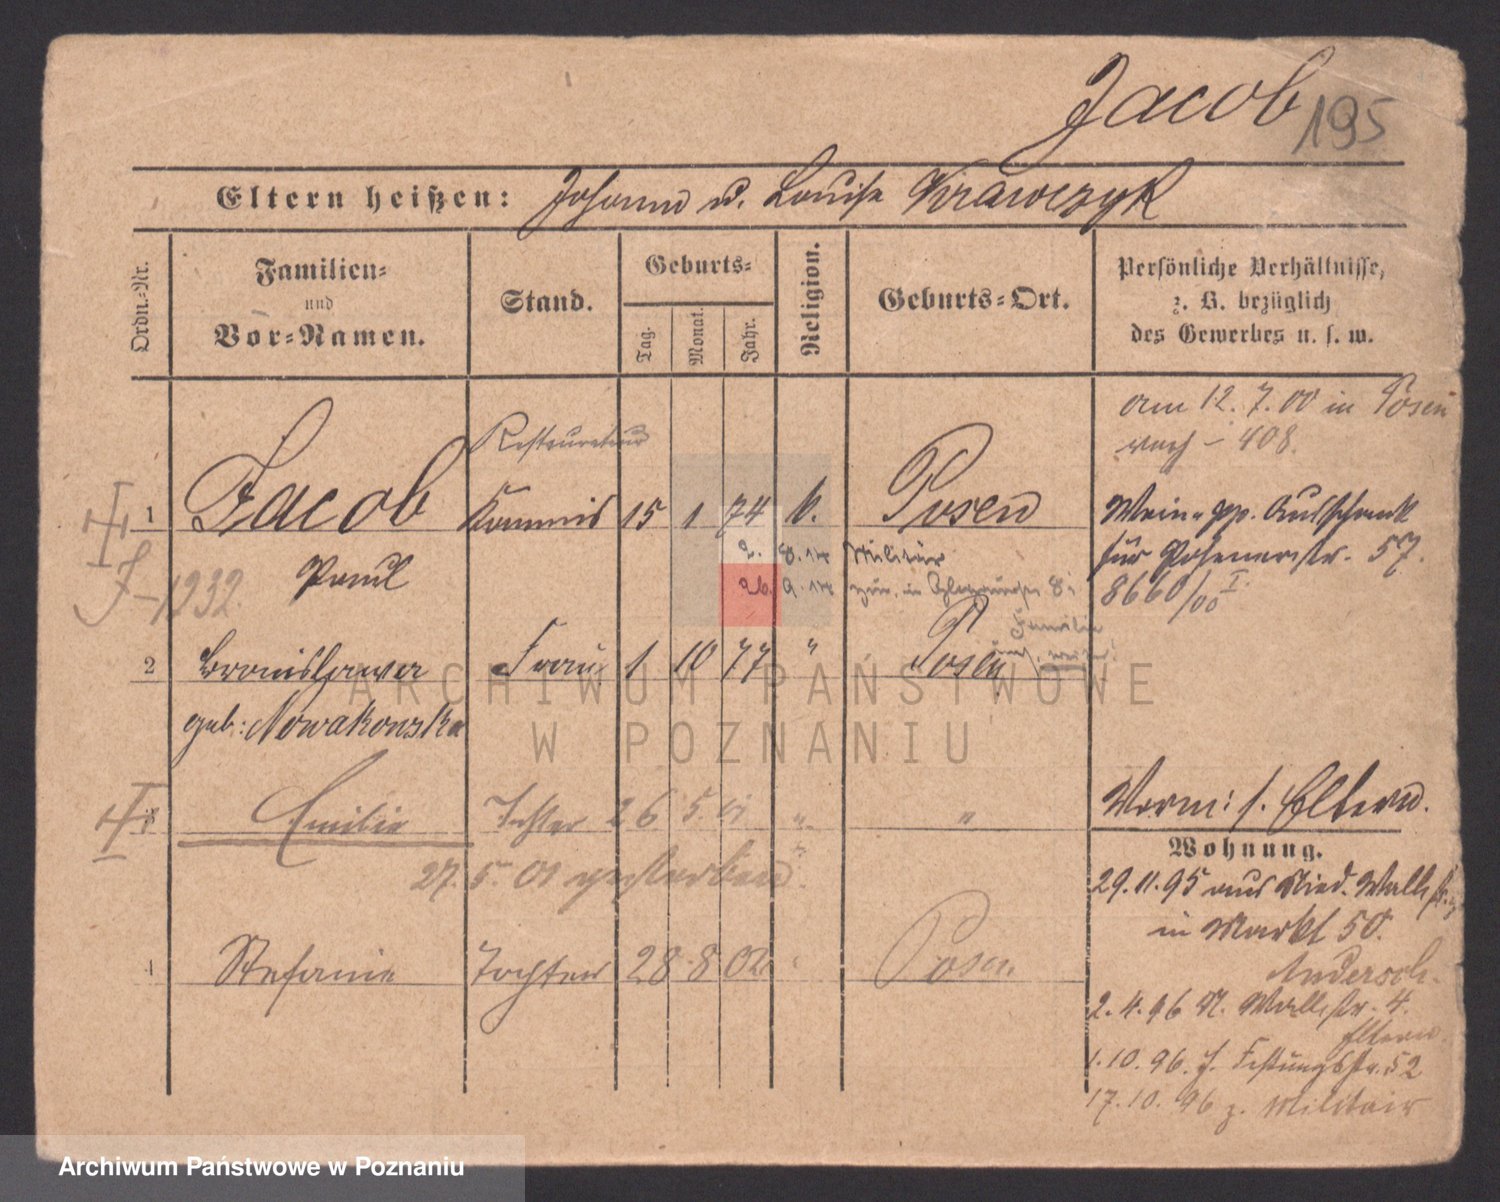 Jacob
195
Eltern heißen: Johann u. Louise Krawczyk
Ordn.-Nr.
Familien-
und
Vor-Namen.
Stand.
Geburts-
Tag.
Monat.
Jahr.
Religion.
Geburts-Ort.
Persönliche Verhältnisse,
z. B. bezüglich
des Gewerbes u. s. w.
am 12. 7. 00 in Posen
408.
Restaurateur
1 Jacob Kommis 15 1 74 k. Posen
Wein- pp. Ausschank
für Posenerstr. 57.
8660/00 I.
Paul
2. 8. 14 Militär
26. 9. 14
J-1232.
Familie
2 Bronislawa Frau 1 10 77 " Posen
geb: Nowakowska
ARCHIWUM PAŃSTWOWE
W POZNANIU
Vorm: s. Eltern.
3 Emilie Tochter 26 5 01 " "
27. 5. 01 gestorben.
Wohnung.
29. 11. 95 aus Nied. Wallstr.
in Markt 50.
4 Stefanie Tochter 28 8 02 Posen.
Andersch.
2. 4. 96 N. Wallstr. 4.
Eltern.
1. 10. 96. Festungsstr. 52
17. 10. 96 z. Militair
Archiwum Państwowe w Poznaniu